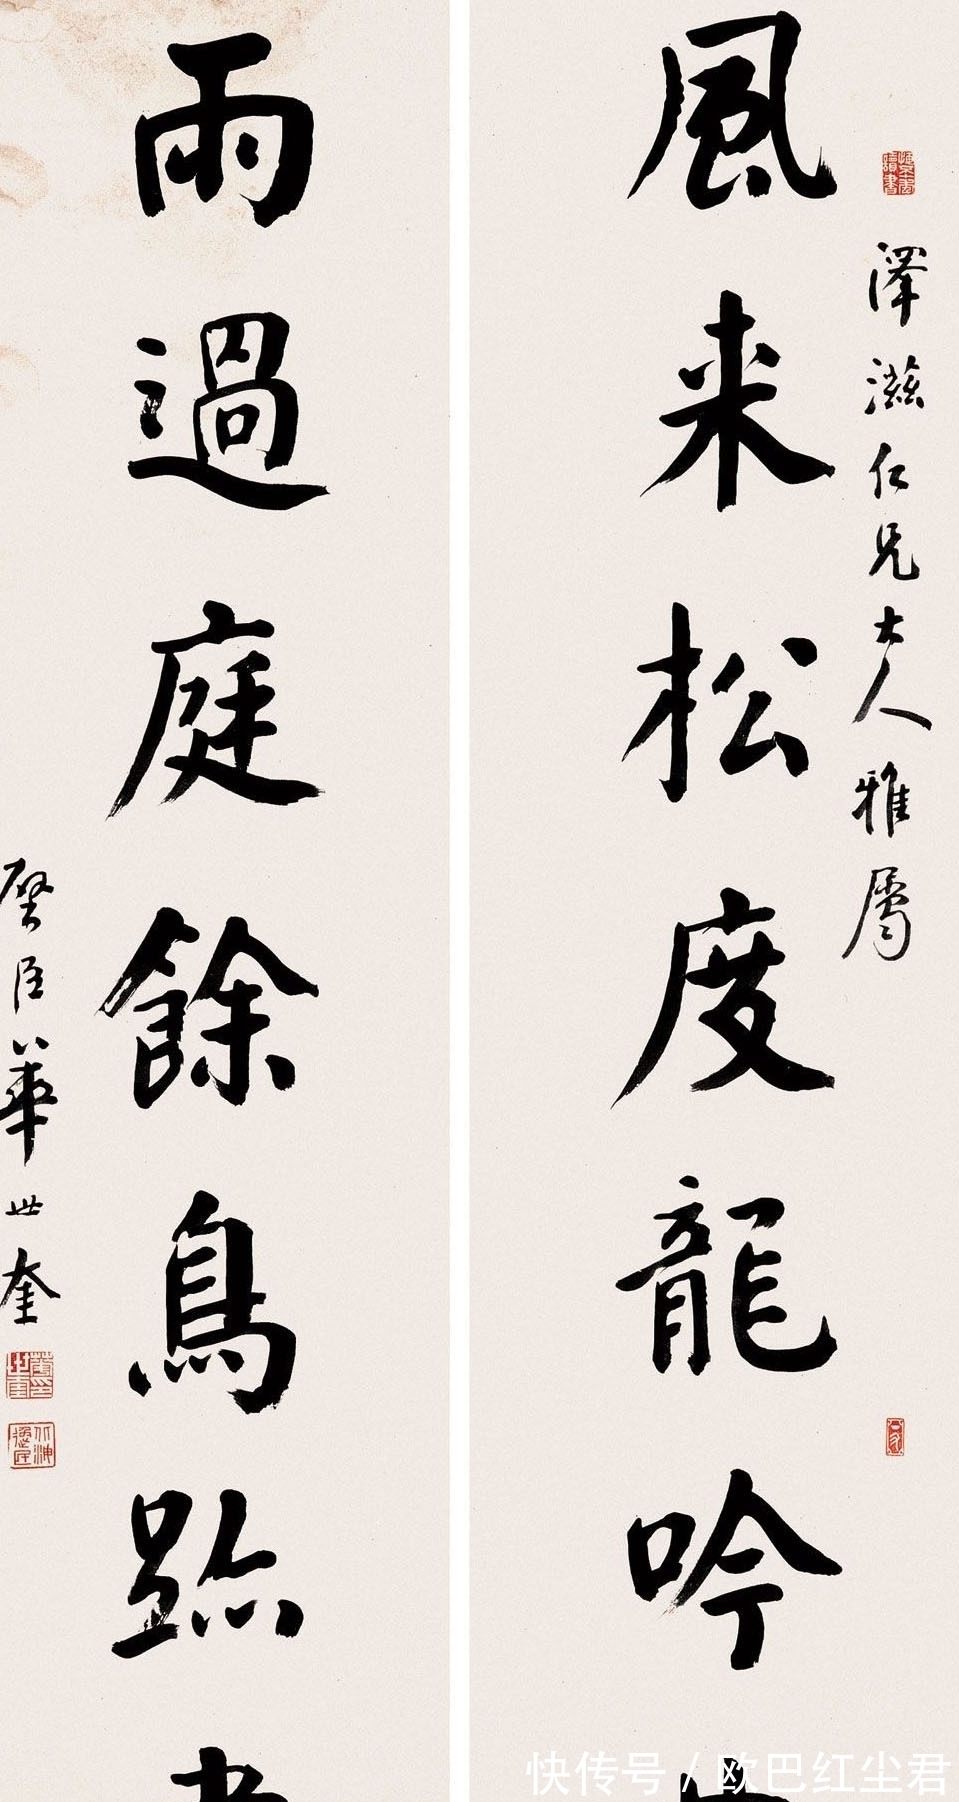 澤滋仁兄大人雅屬
風来松度龍吟
雨過庭餘鳥跡
璧臣華世奎
快传号 / 欧巴红尘君